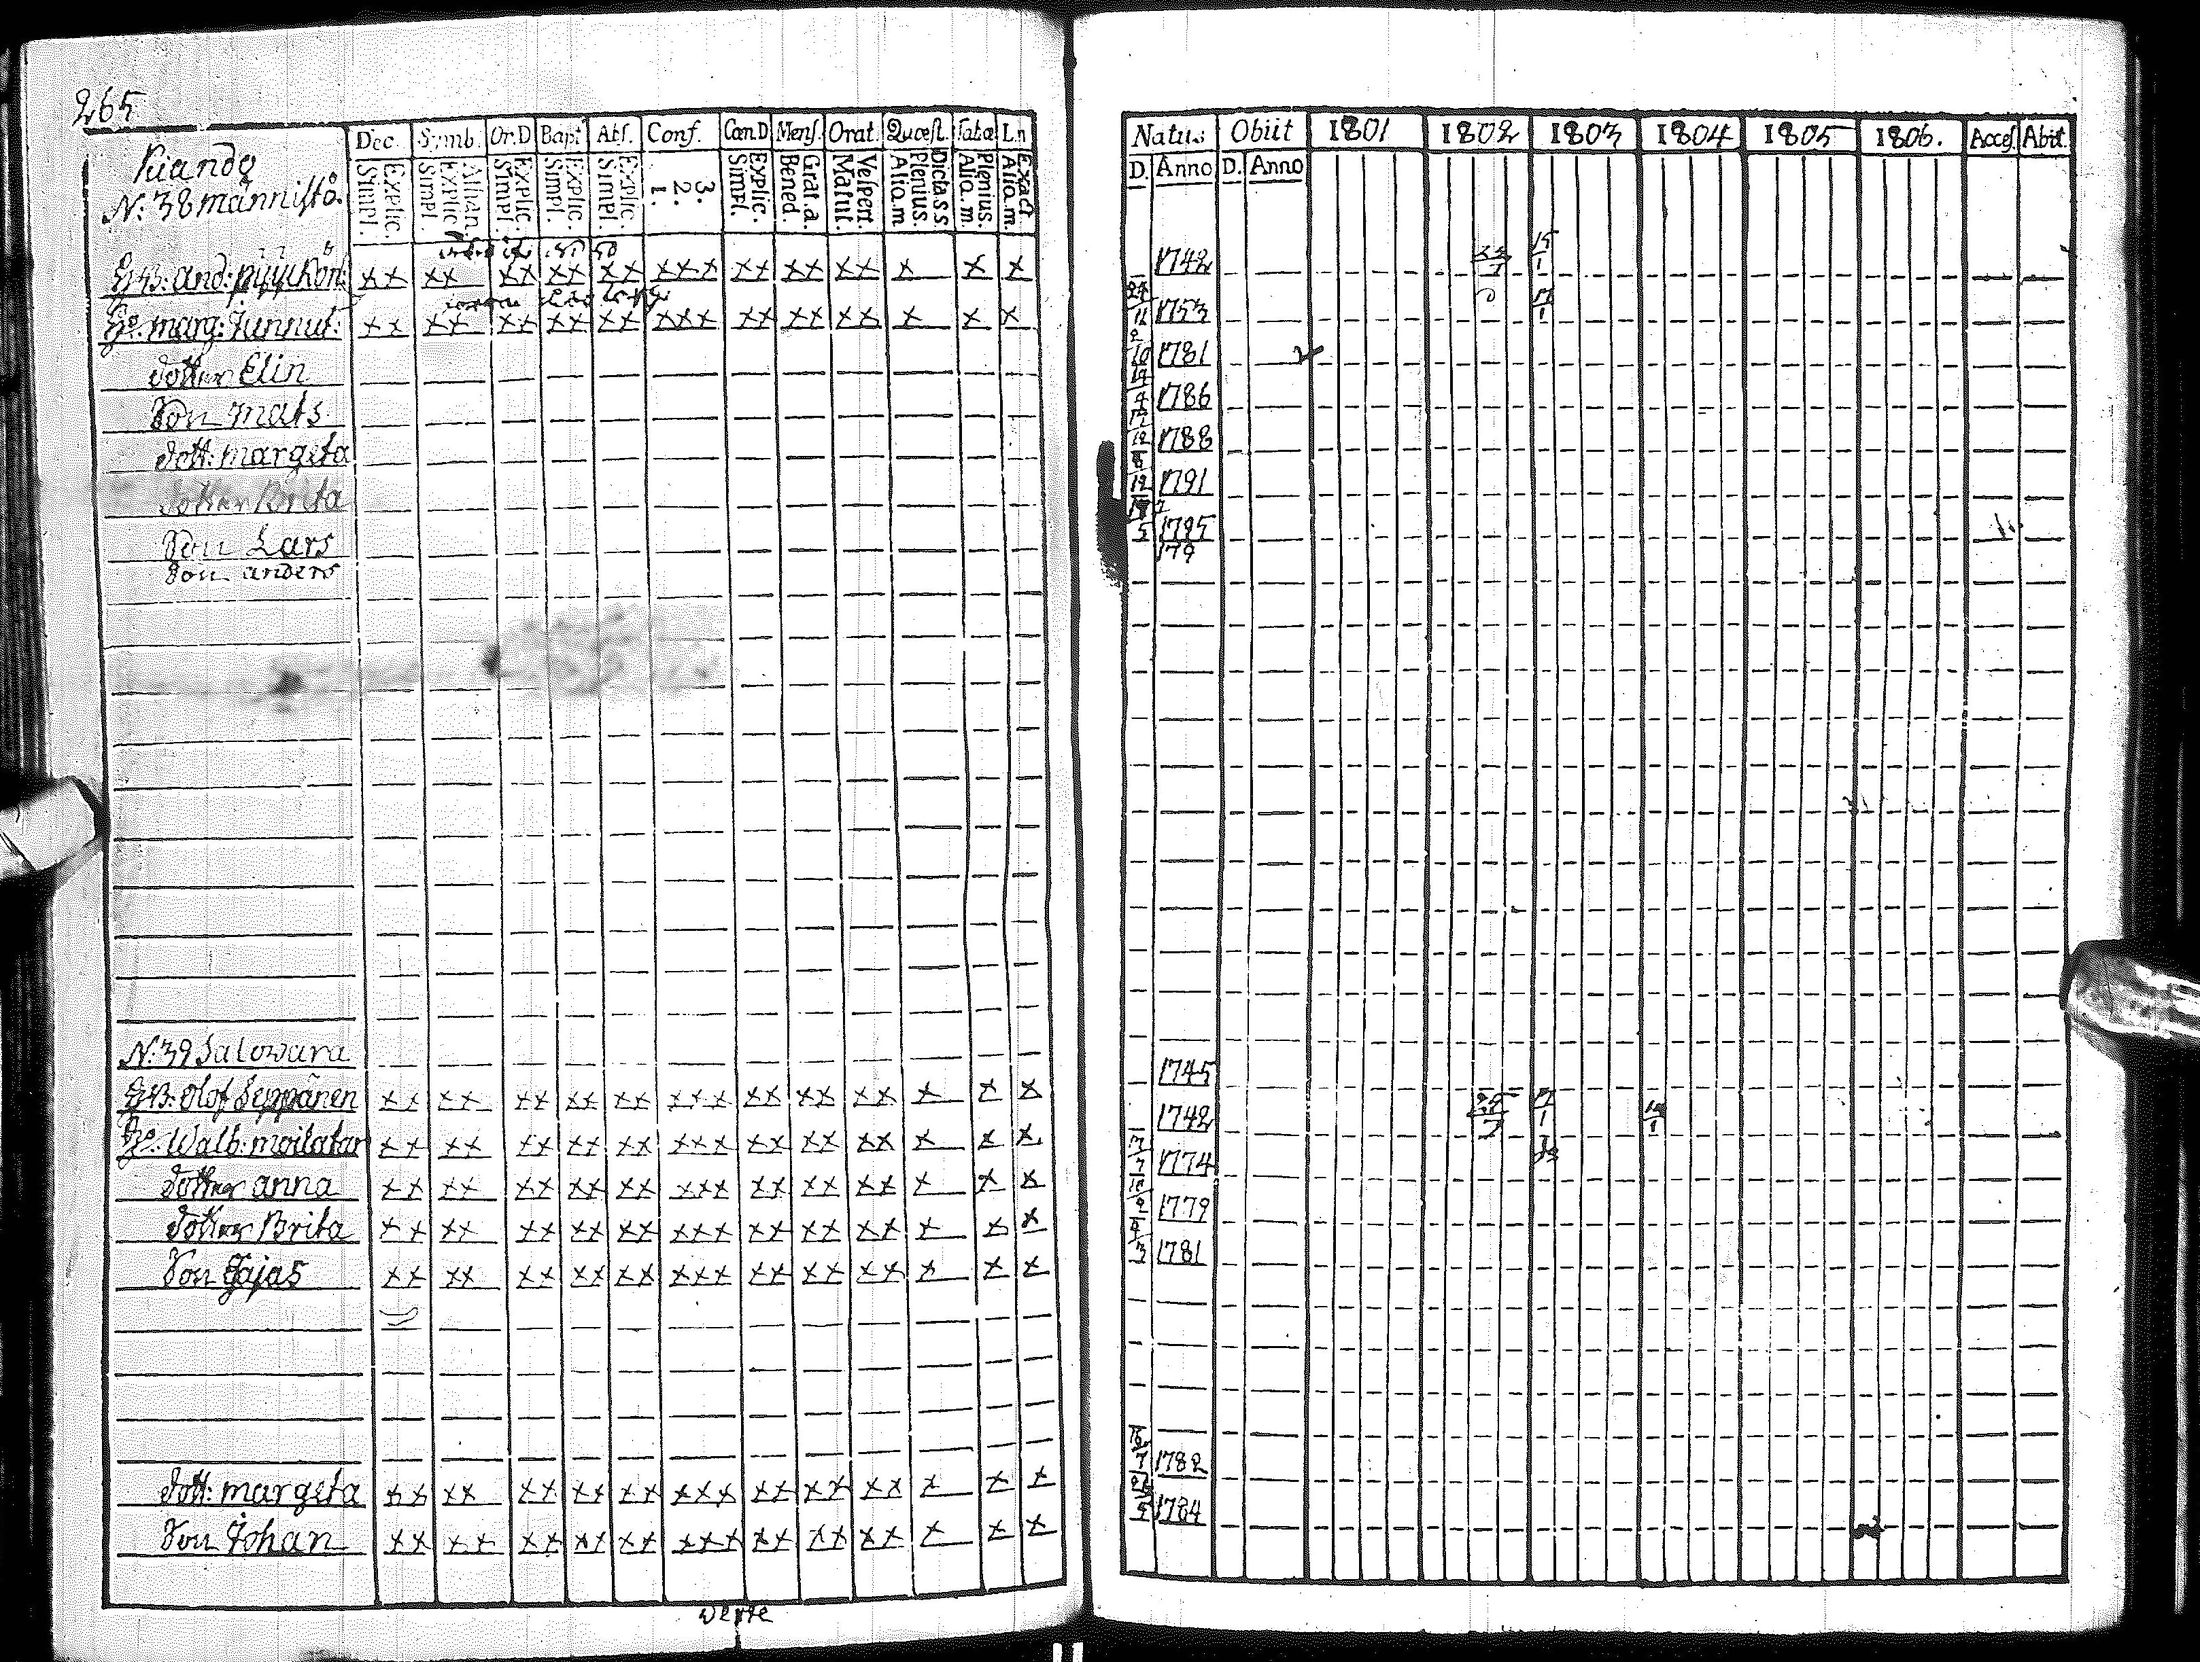 265
Dec. Symb. Or.D Bapt Abs. Conf. Cœn.D Mens. Orat. Quæst. Tabæ L.n
Kiando
N: 38 männistö.
Simpl. Explic. Simpl. Explic. Athan. Simpl. Explic. Simpl. Explic. Simpl. Explic. 1. 2. 3. Simpl. Explic. Bened. Grat.a. Matut. Vespert. Aliq.m Plenius. Dicta.s s Aliq.m. Plenius. Aliq.m. Exact
and: xx xx xx xx xx xxx xx xx xx x x x
marg: Junnut: xx xx xx xx xx xxx xx xx xx x x x
dotter Elin
Son mats
dott: margeta
dotter Brita
Son Lars
Son anders
N: 39 Salowara
Olof Seppänen xx xx xx xx xx xxx xx xx xx x x x
Walb: moilatar xx xx xx xx xx xxx xx xx xx x x x
dotter anna xx xx xx xx xx xxx xx xx xx x x x
dotter Brita xx xx xx xx xx xxx xx xx xx x x x
Son xx xx xx xx xx xxx xx xx xx x x x
dott: margeta xx xx xx xx xx xxx xx xx xx x x x
Son Johan xx xx xx xx xx xxx xx xx xx x x x
verte
Natus Obiit 1801 1802 1803 1804 1805 1806. Acces. Abiit.
D. Anno D. Anno
1742 15/1
1753 17/1
1781
1786
1788
1791
1795
179
1745
1742
1774
1779
1781
1782
1784